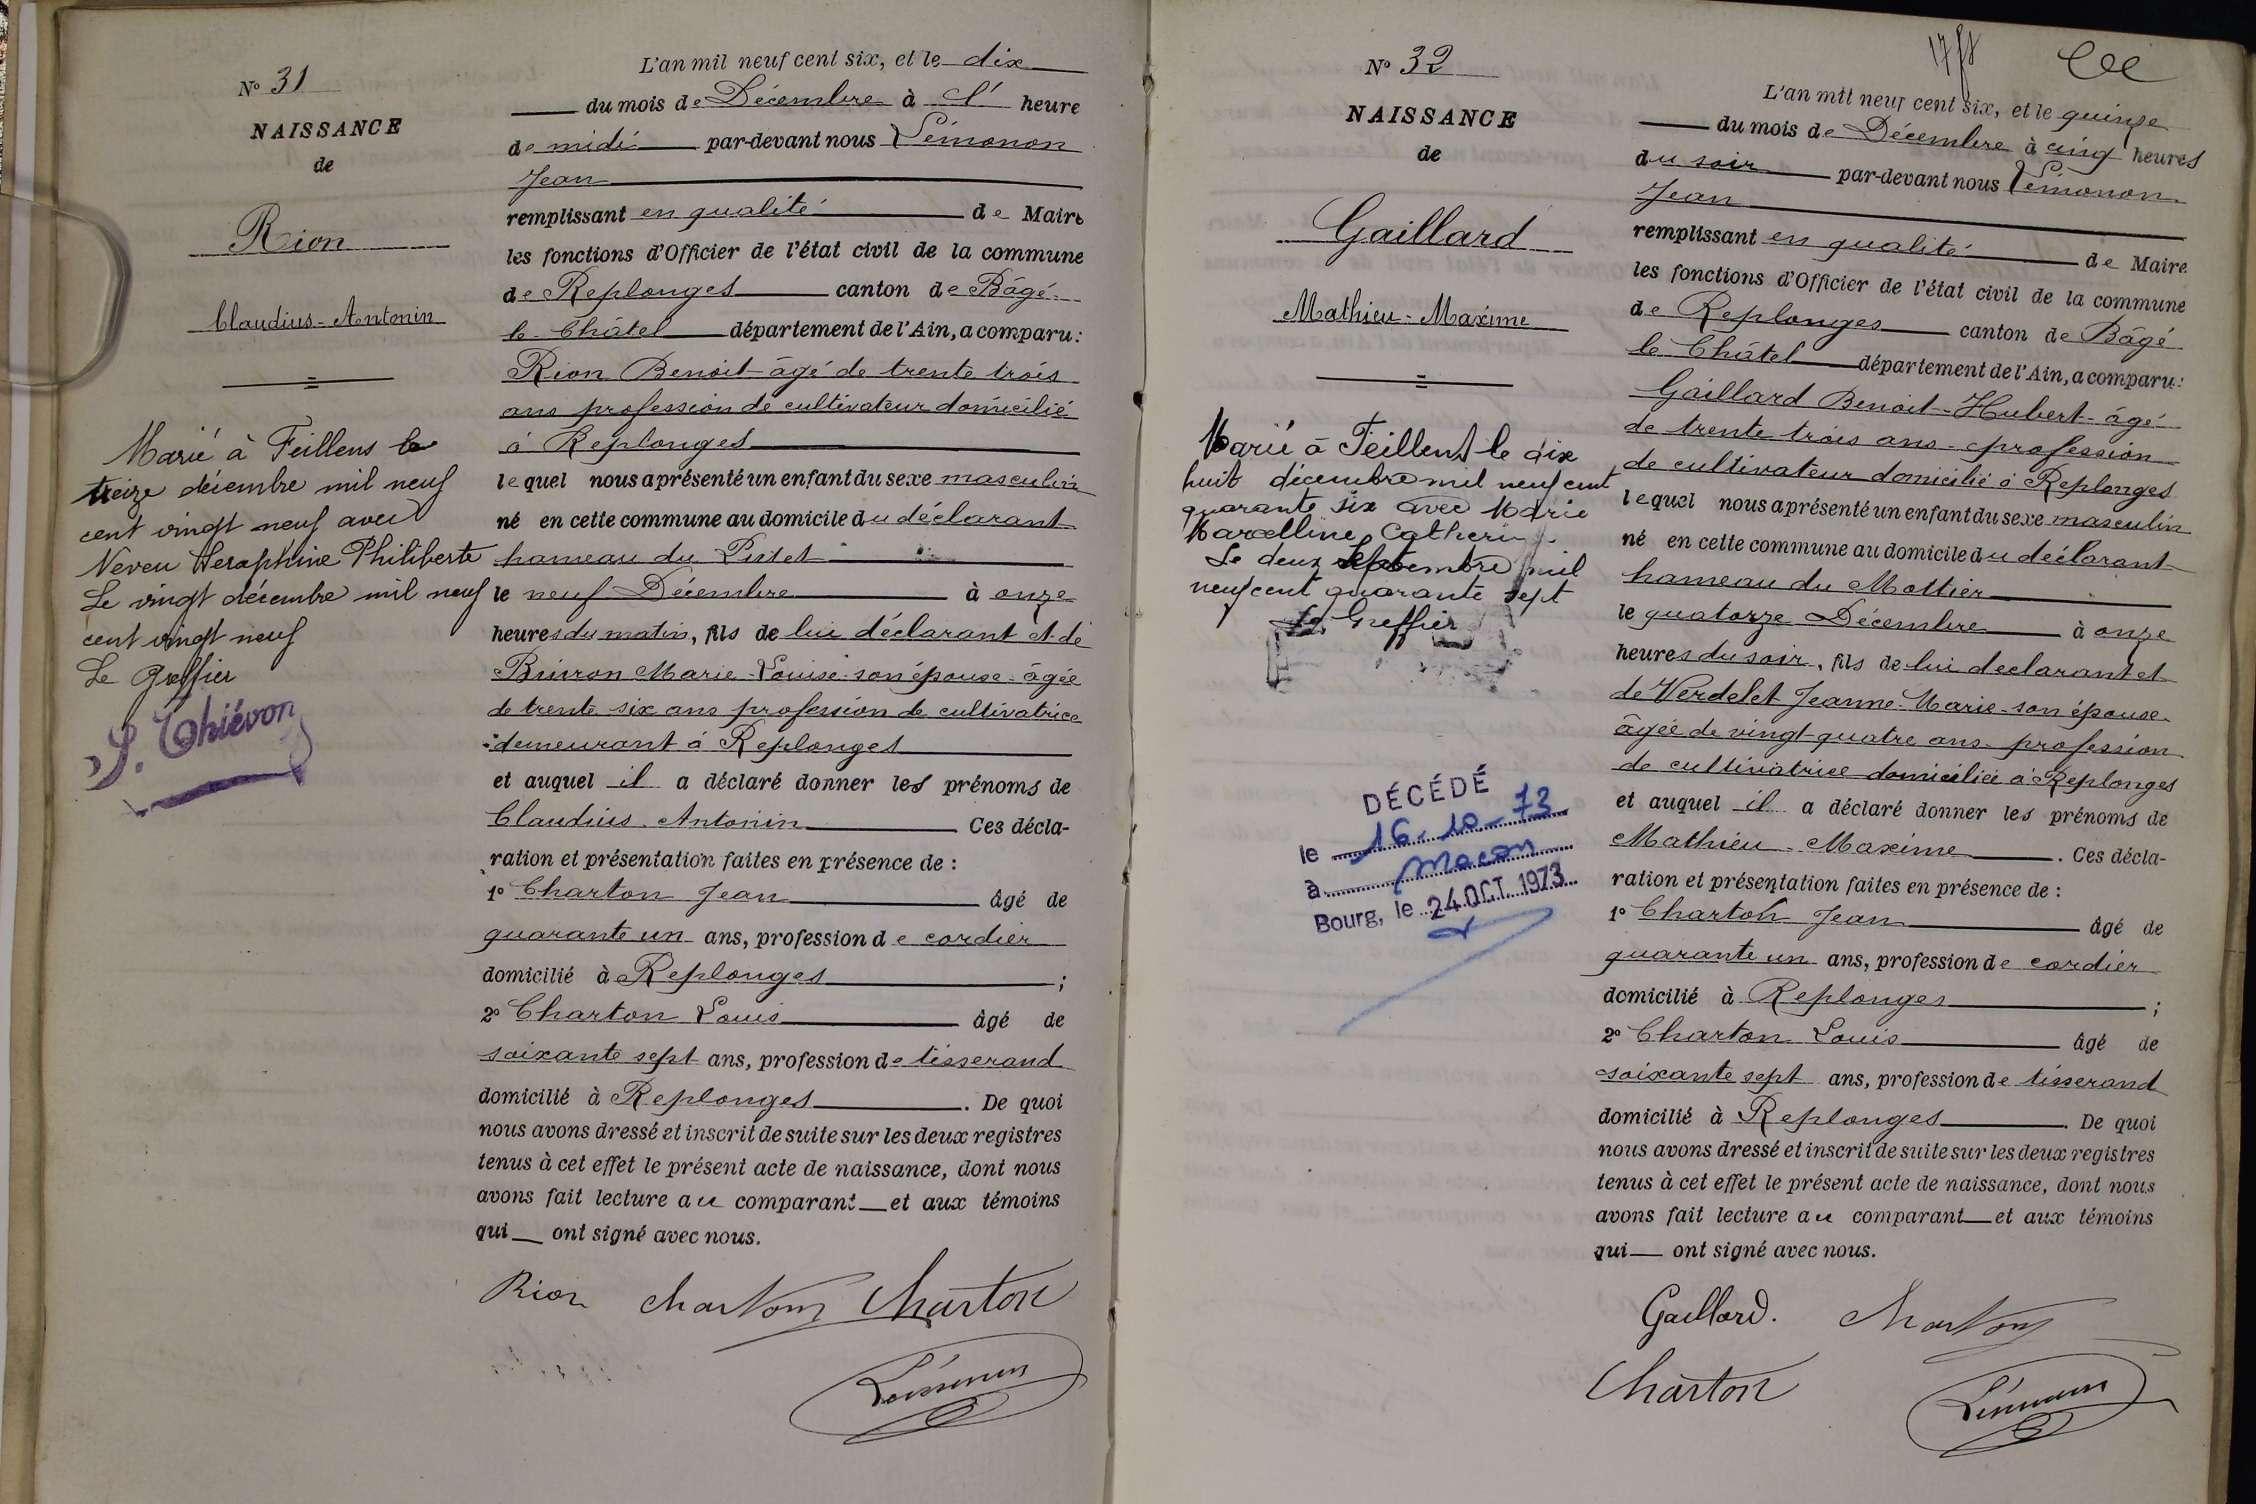 N° 31
NAISSANCE
de
Rion
Claudius-Antonin
Marié à Feillens le
treize décembre mil neuf
cent vingt neuf avec
Neveu Seraphine Philiberte
Le vingt décembre mil neuf
cent vingt neuf
Le Greffier
S. Thiévon
L'an mil neuf cent six, et le dix
du mois de Décembre à l' heure
de midi par-devant nous Lémonon
Jean
remplissant en qualité de Maire
les fonctions d'Officier de l'état civil de la commune
de Replonges canton de Bâgé
le Châtel département de l'Ain, a comparu:
Rion Benoit âgé de trente trois
ans profession de cultivateur domicilié
à Replonges
lequel nous a présenté un enfant du sexe masculin
né en cette commune au domicile du déclarant
hameau du
le neuf Décembre à onze
heures du matin, fils de lui déclarant et de
Marie-Louise son épouse âgée
de trente six ans profession de cultivatrice
demeurant à Replonges
et auquel il a déclaré donner les prénoms de
Claudius Antonin Ces décla-
ration et présentation faites en présence de :
1° Charton Jean âgé de
quarante un ans, profession de cordier
domicilié à Replonges ;
2° Charton Louis âgé de
soixante sept ans, profession de tisserand
domicilié à Replonges. De quoi
nous avons dressé et inscrit de suite sur les deux registres
tenus à cet effet le présent acte de naissance, dont nous
avons fait lecture au comparant et aux témoins
qui ont signé avec nous.
Rion Charton Charton
Lémonon
N° 32
NAISSANCE
de
Gaillard
Mathieu-Maxime
Marié à Feillens le dix
huit décembre mil neuf cent
quarante six avec Marie
Marcelline Catherin
Le deux Septembre mil
neuf cent quarante sept
Le Greffier
DÉCÉDÉ
le 16-10-73
à Macon
Bourg, le 24 OCT. 1973
L'an mil neuf cent six, et le quinze
du mois de Décembre à cinq heures
du soir par-devant nous Lémonon
Jean
remplissant en qualité de Maire
les fonctions d'Officier de l'état civil de la commune
de Replonges canton de Bâgé
le Châtel département de l'Ain, a comparu:
Gaillard Benoit-Hubert-âgé
de trente trois ans profession
de cultivateur domicilié à Replonges
lequel nous a présenté un enfant du sexe masculin
né en cette commune au domicile du déclarant
hameau du Mottier
le quatorze Décembre à onze
heures du soir, fils de lui declarant et
de Verdelet Jeanne-Marie-son épouse
âgée de vingt-quatre ans profession
de cultivatrice domiciliée à Replonges
et auquel il a déclaré donner les prénoms de
Mathieu-Maxime. Ces décla-
ration et présentation faites en présence de :
1° Charton Jean âgé de
quarante un ans, profession de cordier
domicilié à Replonges ;
2° Charton Louis âgé de
soixante sept ans, profession de tisserand
domicilié à Replonges. De quoi
nous avons dressé et inscrit de suite sur les deux registres
tenus à cet effet le présent acte de naissance, dont nous
avons fait lecture au comparant et aux témoins
qui ont signé avec nous.
Gaillard. Charton
Charton Lémonon